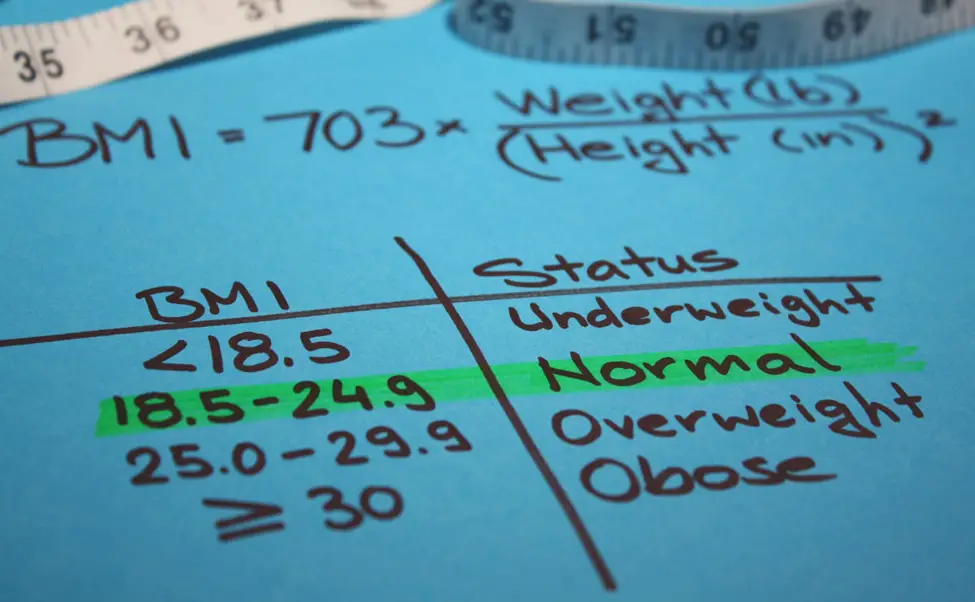 35 36 37
52 51 50 49 48
BMI = 703 × Weight (lb)
(Height (in))²
BMI Status
<18.5 Underweight
18.5-24.9 Normal
25.0-29.9 Overweight
≥ 30 Obose